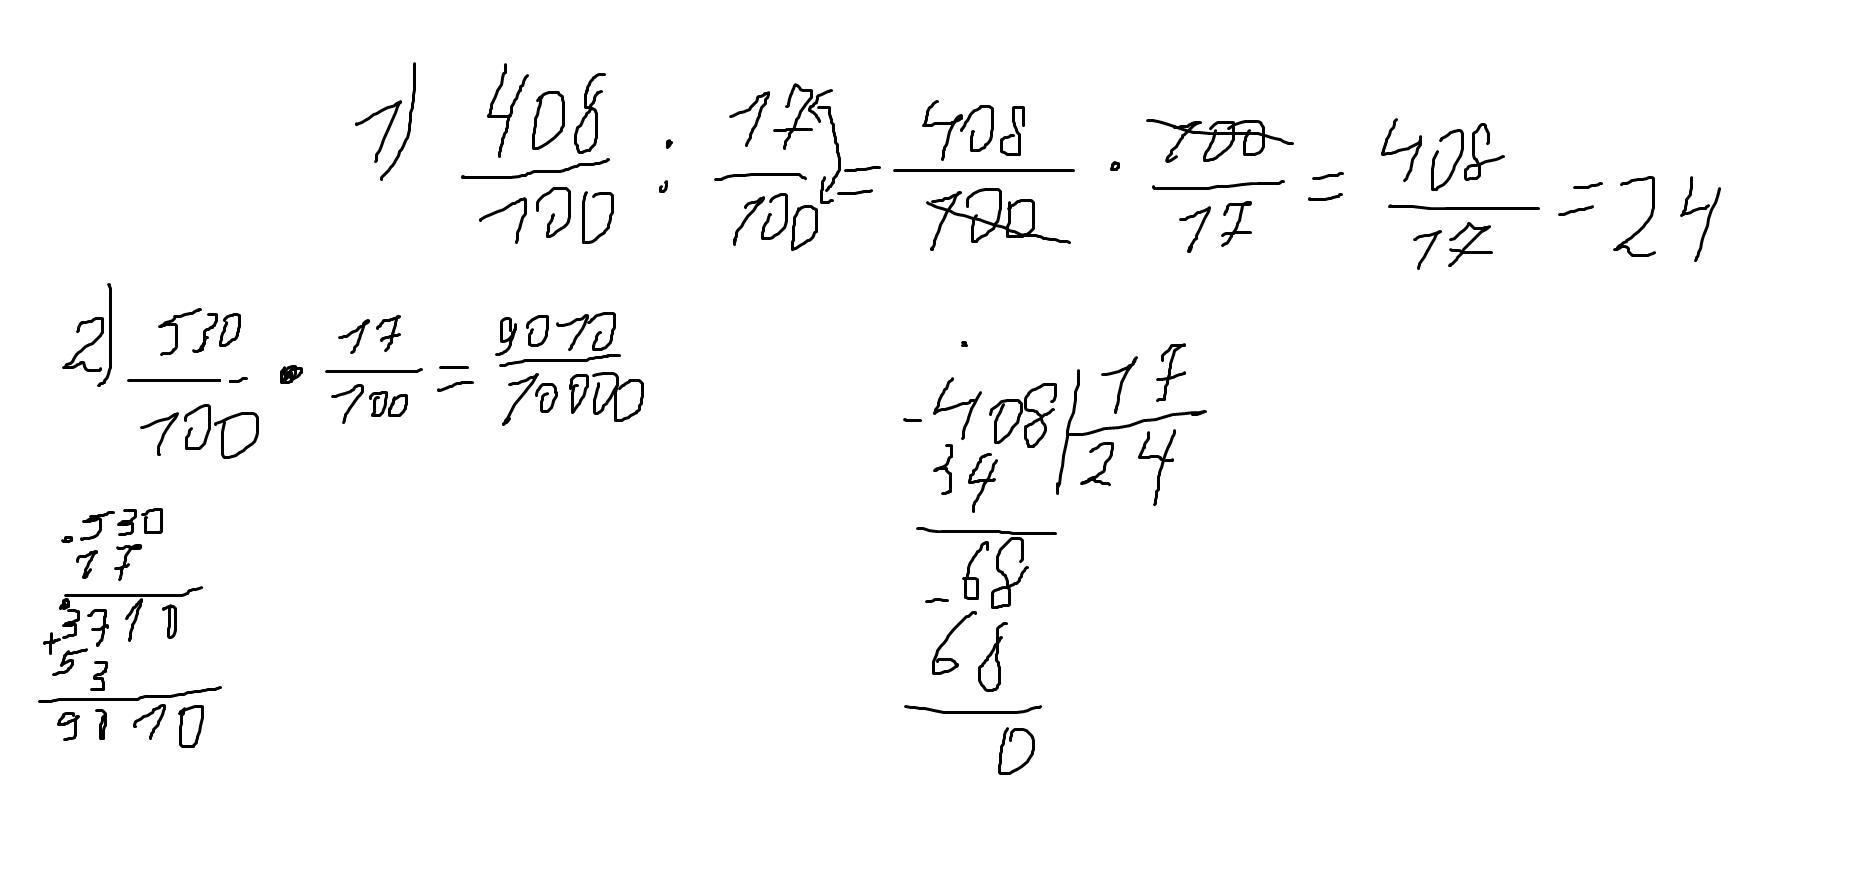 1) 408/100 : 17/100 = 408/100 · 100/17 = 408/17 = 24
2) 530/100 · 17/100 = 9010/10000
· 530
17
3710
+ 53
9010
- 408 | 17
34 | 24
- 68
68
0